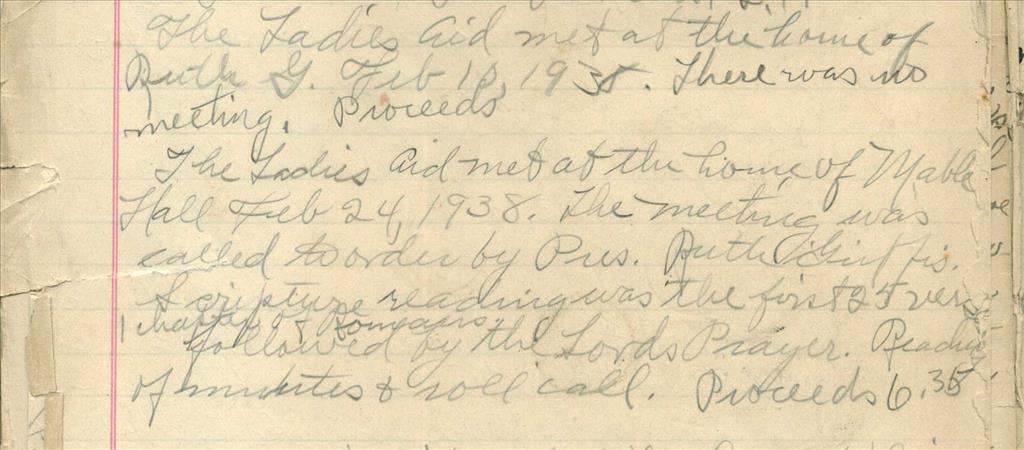 The Ladies Aid met at the home of
Ruth G. Feb 10, 1938. There was no
meeting. Proceeds
The Ladies Aid met at the home of Mable
Hall Feb 24, 1938. The meeting was
called to order by Pres. Ruth Griffis.
Scripture reading was the first 25 vers
1 chapter of Romans
followed by the Lords Prayer. Reading
of minutes & roll call. Proceeds 6.35